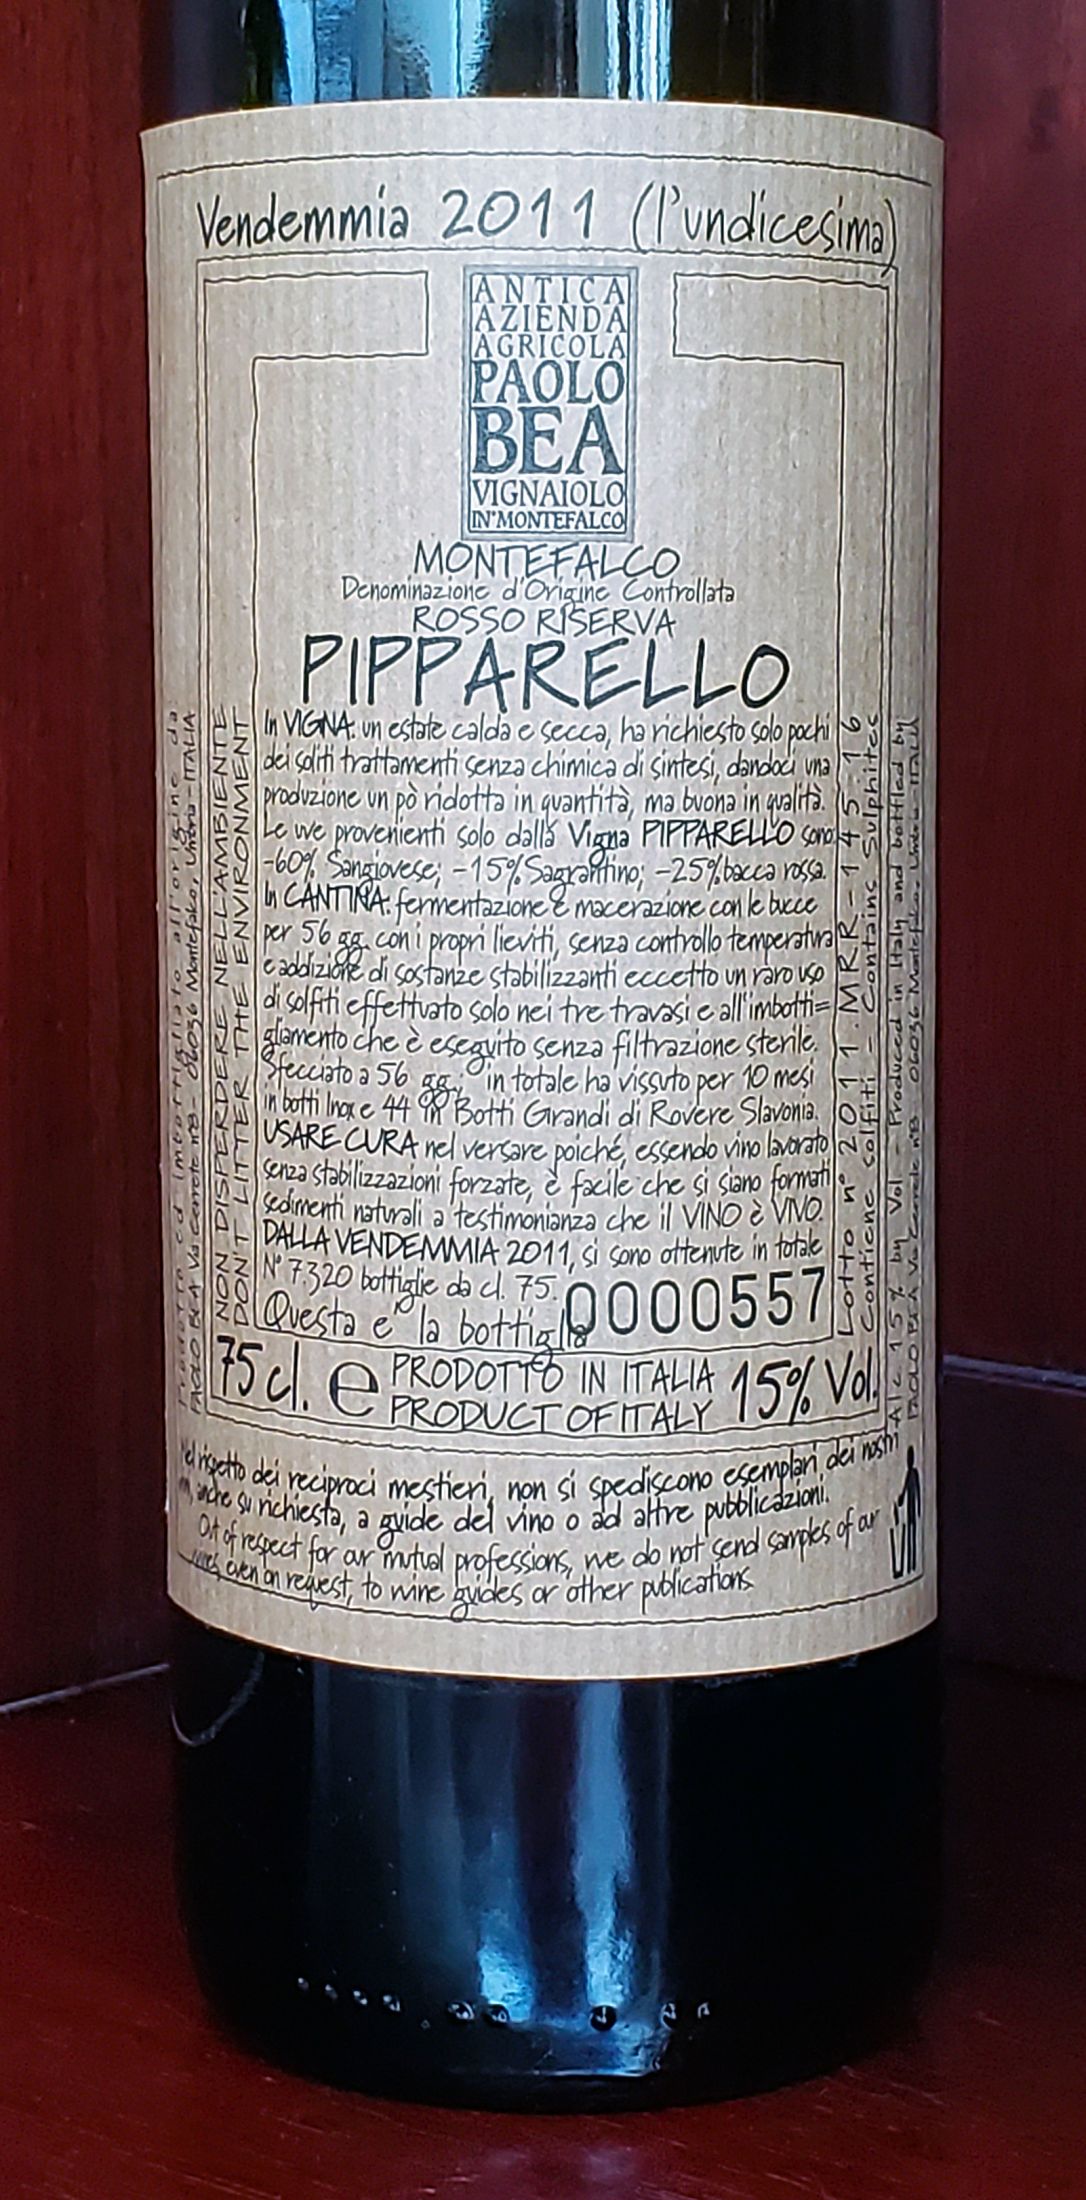 Vendemmia 2011 (l'undicesima)
ANTICA
AZIENDA
AGRICOLA
PAOLO
BEA
VIGNAIOLO
IN MONTEFALCO
MONTEFALCO
Denominazione d'Origine Controllata
ROSSO RISERVA
PIPPARELLO
In VIGNA: un estate calda e secca, ha richiesto solo pochi
dei soliti trattamenti senza chimica di sintesi, dandoci una
produzione un pò ridotta in quantità, ma buona in qualità.
Le uve provenienti solo dalla Vigna PIPPARELLO sono:
-60% Sangiovese; -15% Sagrantino; -25% bacca rossa.
In CANTINA: fermentazione e macerazione con le bucce
per 56 gg. con i propri lieviti, senza controllo temperatura
e addizione di sostanze stabilizzanti eccetto un raro uso
di solfiti effettuato solo nei tre travasi e all'imbotti=
gliamento che è eseguito senza filtrazione sterile.
Sfecciato a 56 gg.; in totale ha vissuto per 10 mesi
in botti Inox e 44 in Botti Grandi di Rovere Slavonia.
USARE CURA nel versare poiché, essendo vino lavorato
senza stabilizzazioni forzate, è facile che si siano formati
sedimenti naturali a testimonianza che il VINO è VIVO.
DALLA VENDEMMIA 2011, si sono ottenute in totale
N° 7.320 bottiglie da cl. 75.
Questa e' la bottiglia 0000557
75 cl. e PRODOTTO IN ITALIA 15% Vol.
PRODUCT OF ITALY
Nel rispetto dei reciproci mestieri, non si spediscono esemplari dei nostri
anche su richiesta, a guide del vino o ad altre pubblicazioni.
Out of respect for our mutual professions, we do not send samples of our
wines, even on request, to wine guides or other publications.
Prodotto ed imbottigliato all'origine da
PAOLO BEA Via Cerrete n°8 - 06036 Montefalco, Umbria - ITALIA
NON DISPERDERE NELL'AMBIENTE
DON'T LITTER THE ENVIRONMENT
Lotto n° 2011.MRR-145-16
Contiene solfiti - Contains Sulphites
Alc. 15% by Vol - Produced in Italy and bottled by
PAOLO BEA Via Cerrete n°8 - 06036 Montefalco, Umbria - ITALIA